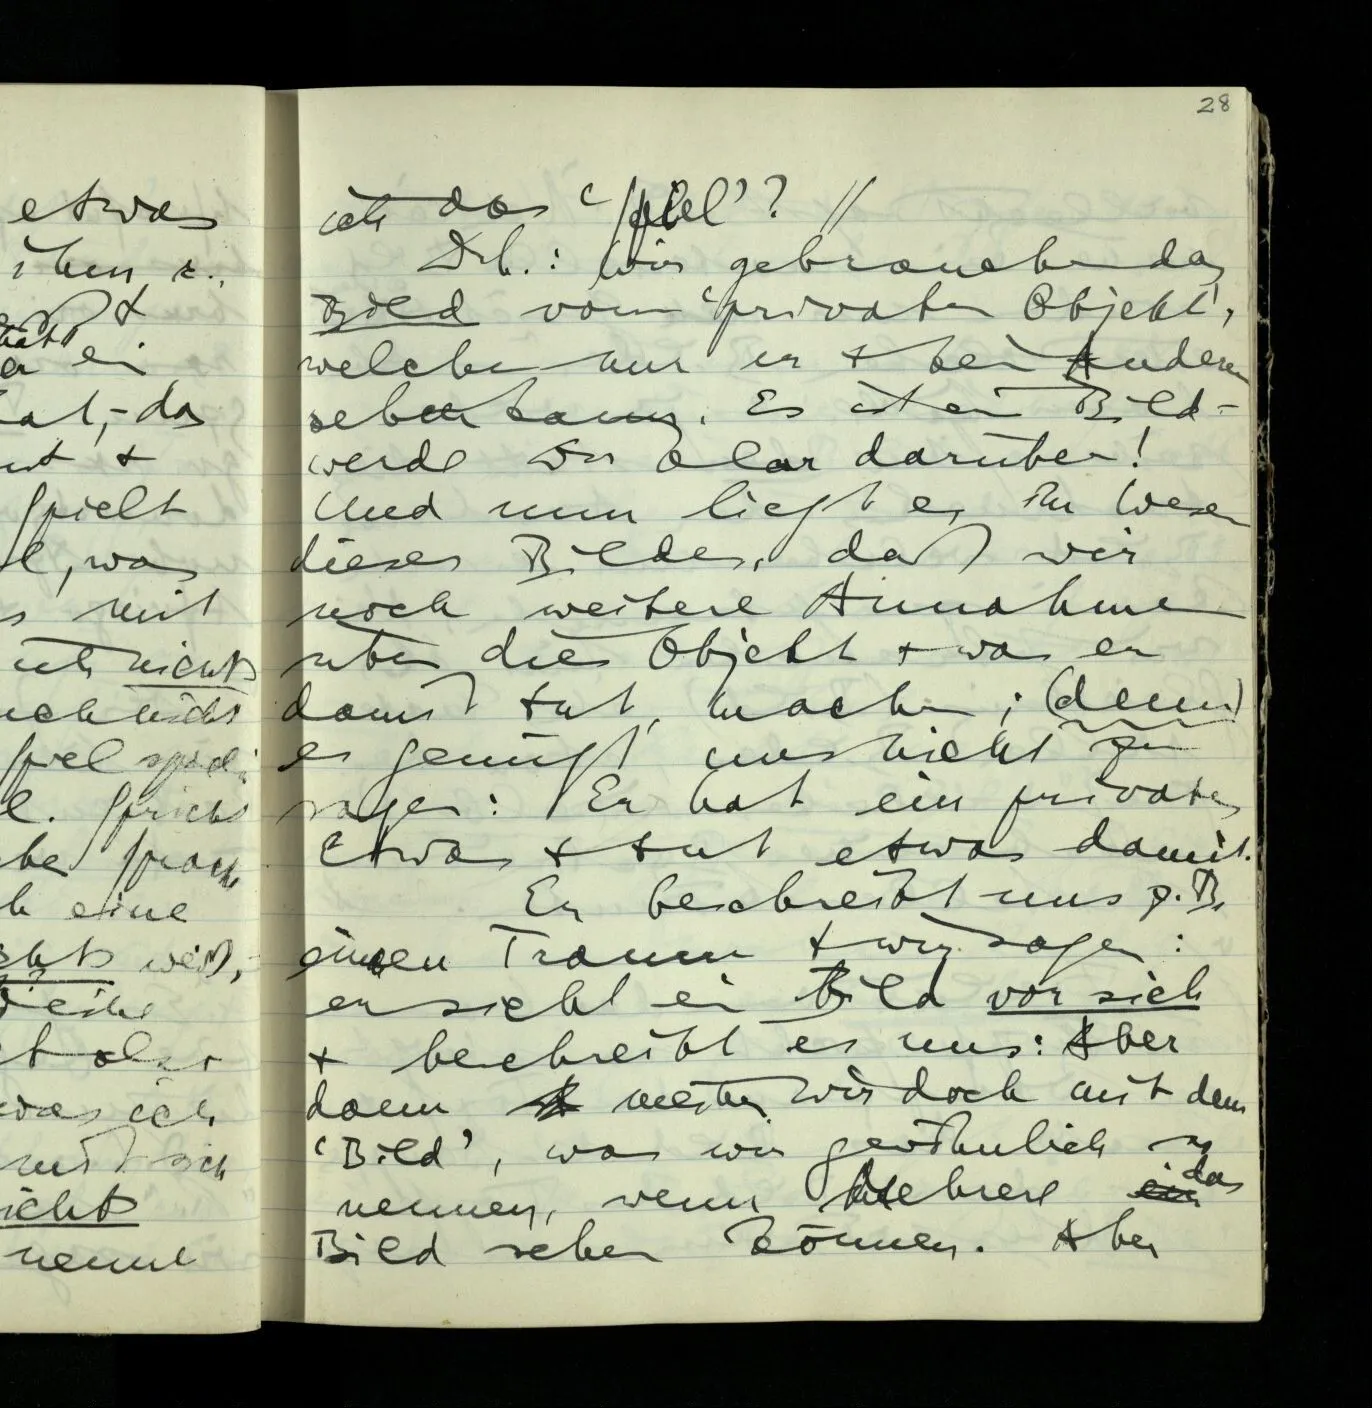 28
etwas
ihm z.
&
ein
hat, – das
&
spielt
was
mit
ich nichts
auch nicht
Spiel
Spricht
eine
nichts weiß,
also
was ich
mit sich
nichts
nennt
ich das ‘Spiel’? //
D.h.: wir gebrauchen das
Bild vom ‘privaten Objekt’,
welches nur er & kein Anderer
sehen kann. Es ist ein Bild –
werde Dir klar darüber!
Und nun liegt es im Wesen
dieses Bildes, daß wir
noch weitere Annahmen
über dies Objekt & was er
damit tut, machen; (denn)
es genügt uns nicht zu
sagen: Er hat ein privates
Etwas & tut etwas damit.
Er beschreibt uns z.B.
einen Traum & wir sagen:
er sieht ein Bild vor sich
& beschreibt es uns: Aber
dann meinen wir doch mit dem
‘Bild’, was wir gewöhnlich so
nennen, wenn Mehrere ein das
Bild sehen können. Aber